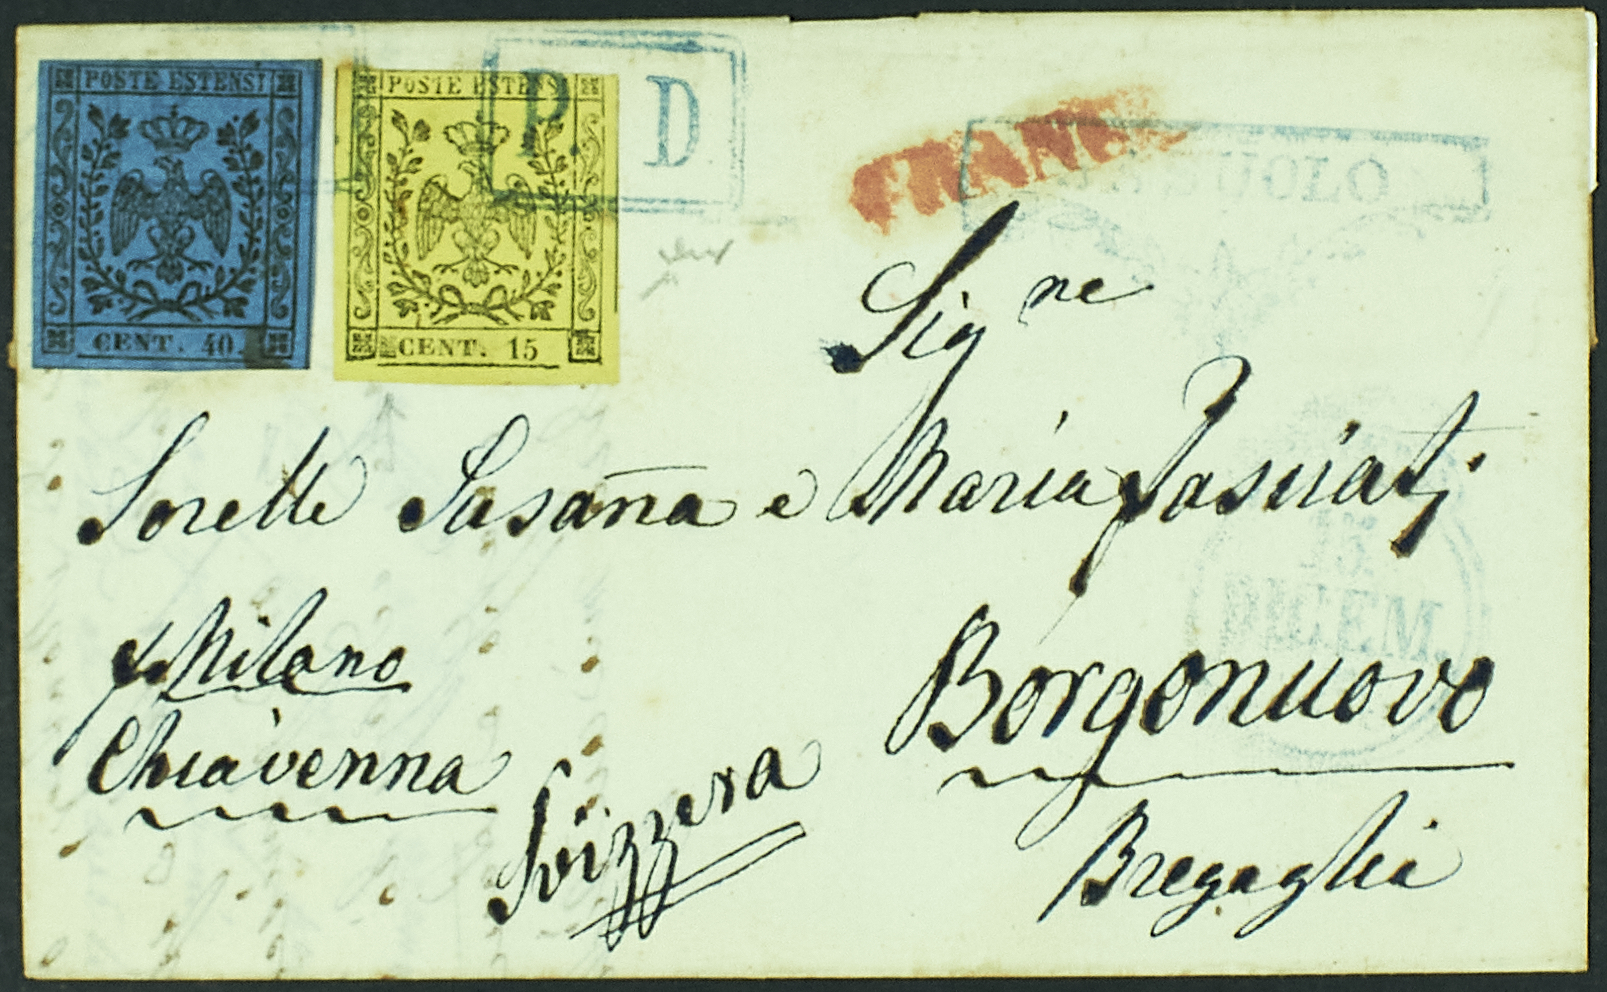 POSTE ESTENSI
CENT. 40.
POSTE ESTENSI
CENT. 15
P. D
FRANC
SUOLO
Sig.ne
Sorelle Susaña e Maria
p. Milano
Chiavenna
Svizzera
Borgonuovo
Bregaglia
15
DICEM.